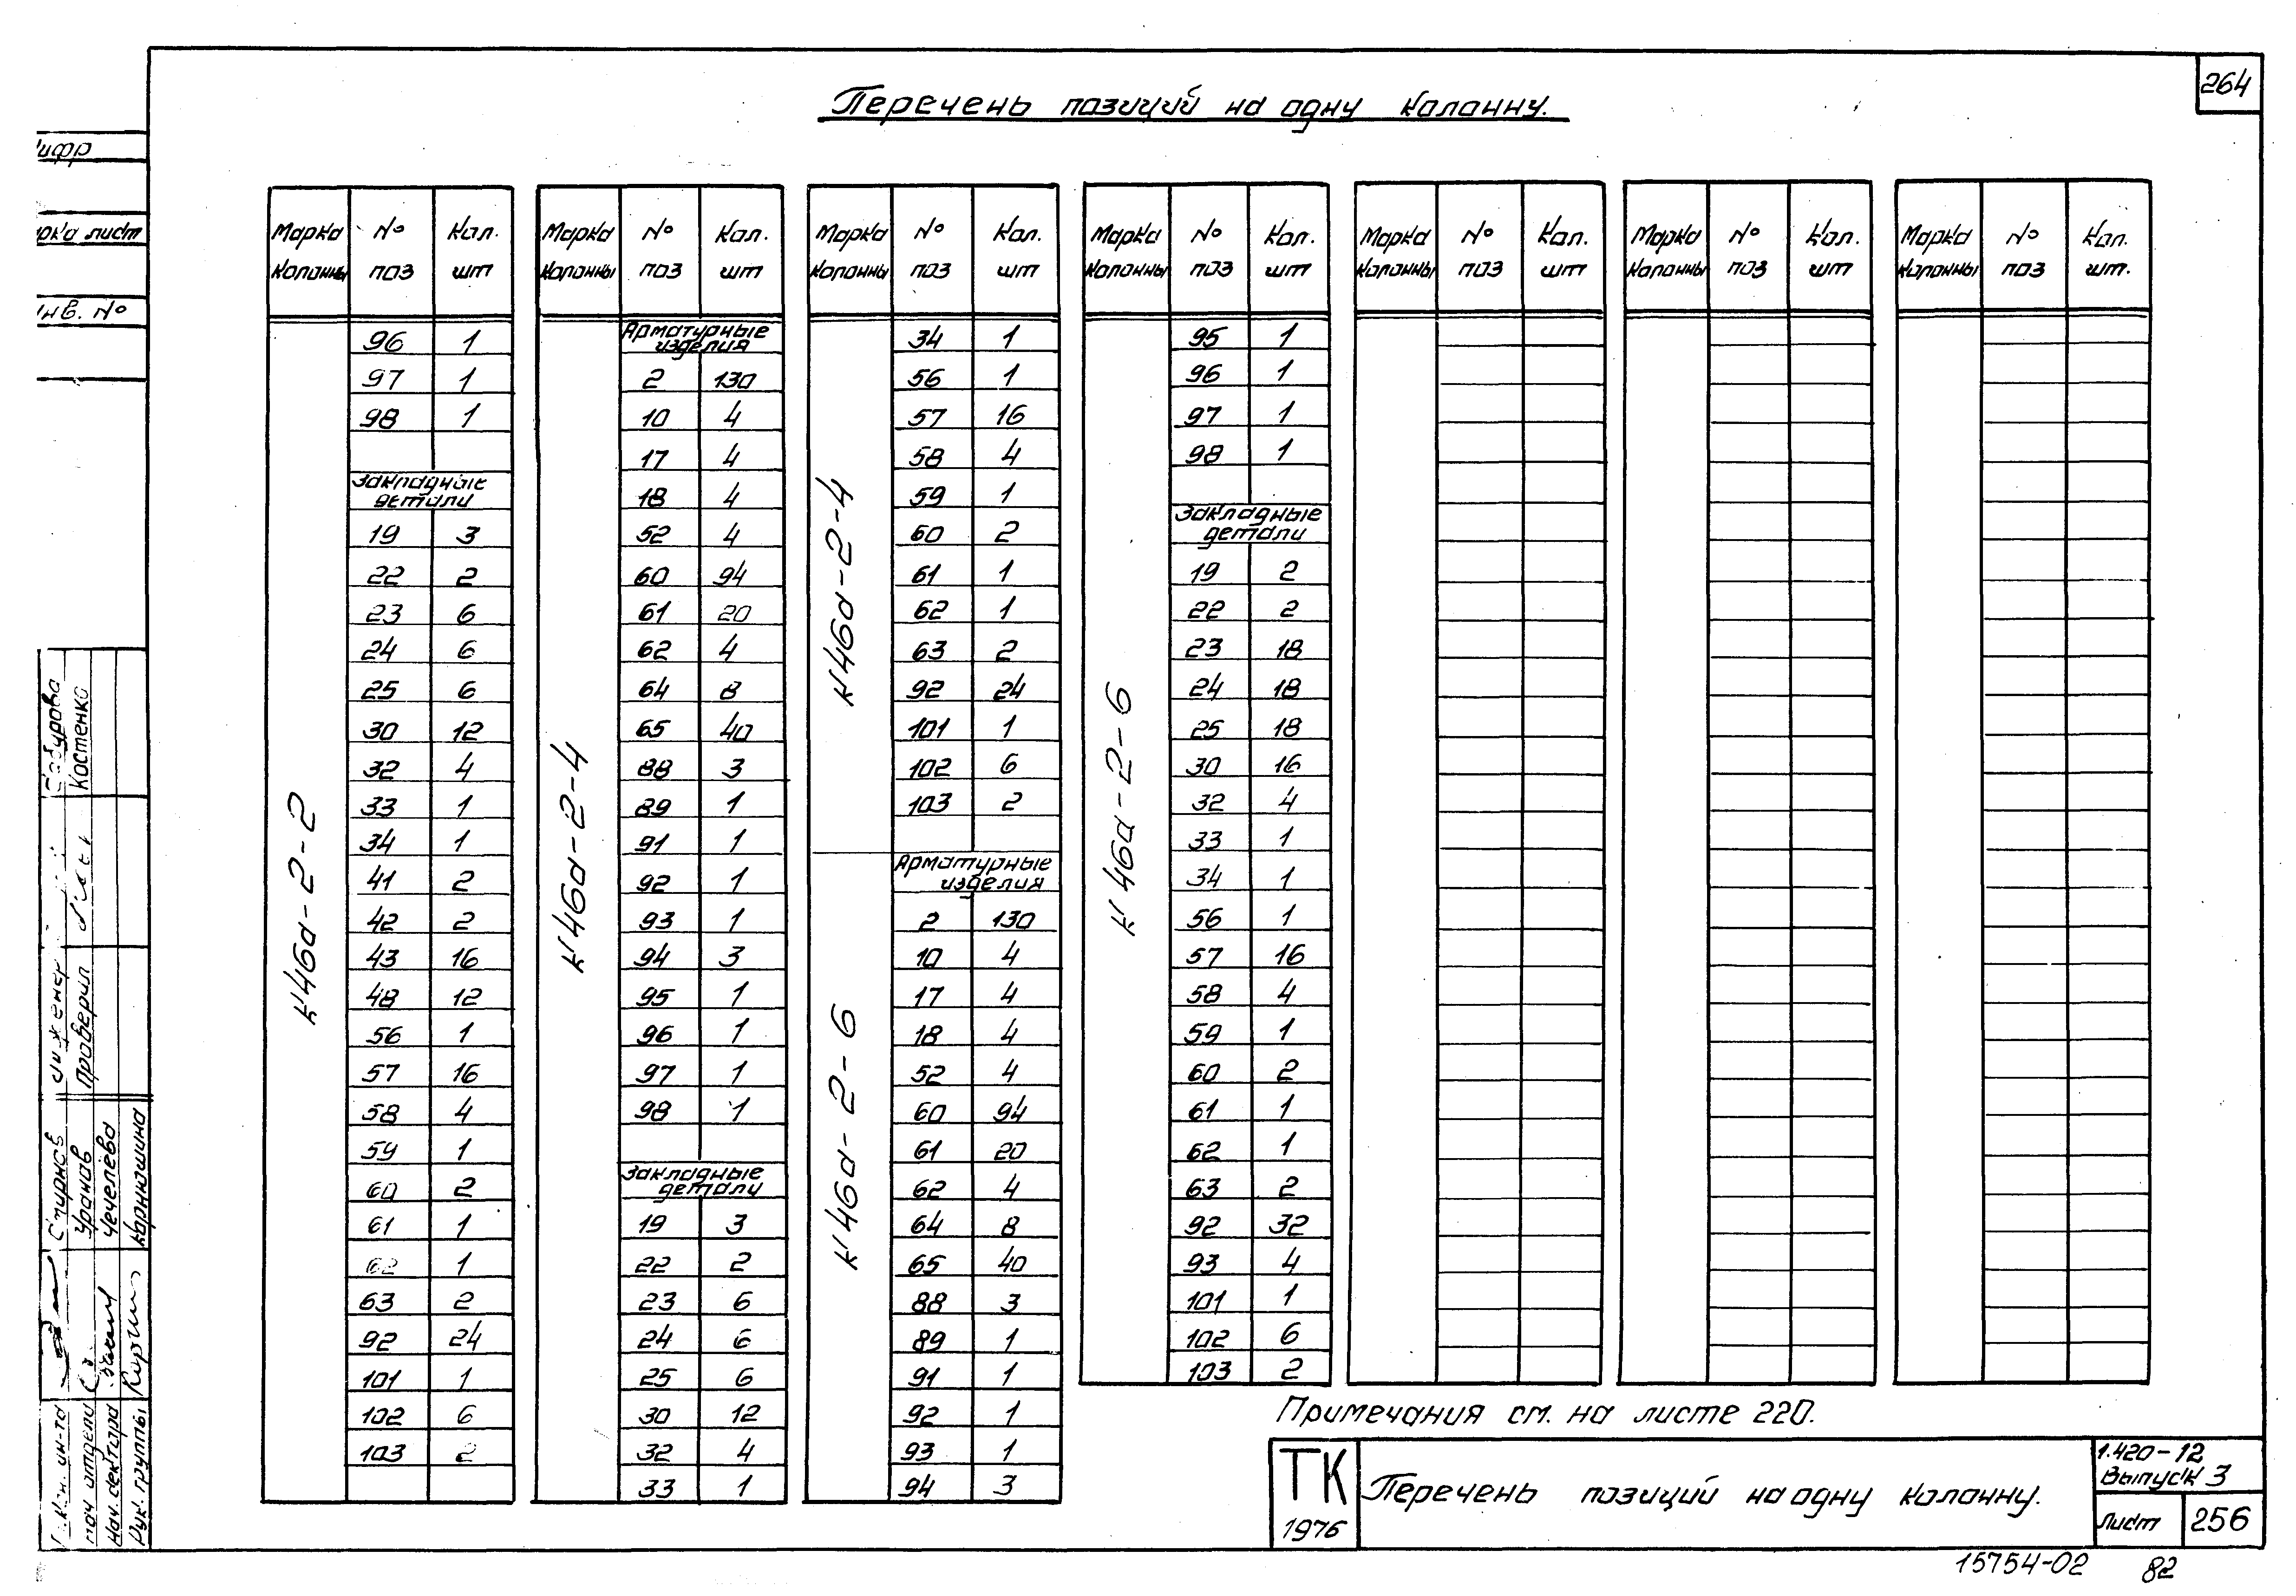 264
Перечень позиций на одну колонну.
Марка колонны | № поз | Кол. шт
К46а-2-2
96 1
97 1
98 1
Закладные детали
19 3
22 2
23 6
24 6
25 6
30 12
32 4
33 1
34 1
41 2
42 2
43 16
48 12
56 1
57 16
58 4
59 1
60 2
61 1
62 1
63 2
92 24
101 1
102 6
103 2
Марка колонны | № поз | Кол. шт
К46а-2-4
Арматурные изделия
2 130
10 4
17 4
18 4
52 4
60 94
61 20
62 4
64 8
65 40
88 3
89 1
91 1
92 1
93 1
94 3
95 1
96 1
97 1
98 1
Закладные детали
19 3
22 2
23 6
24 6
25 6
30 12
32 4
33 1
Марка колонны | № поз | Кол. шт
К46а-2-4
34 1
56 1
57 16
58 4
59 1
60 2
61 1
62 1
63 2
92 24
101 1
102 6
103 2
К46а-2-6
Арматурные изделия
2 130
10 4
17 4
18 4
52 4
60 94
61 20
62 4
64 8
65 40
88 3
89 1
91 1
92 1
93 1
94 3
Марка колонны | № поз | Кол. шт
К46а-2-6
95 1
96 1
97 1
98 1
Закладные детали
19 2
22 2
23 18
24 18
25 18
30 16
32 4
33 1
34 1
56 1
57 16
58 4
59 1
60 2
61 1
62 1
63 2
92 32
93 4
101 1
102 6
103 2
Марка колонны | № поз | Кол. шт
Марка колонны | № поз | Кол. шт
Марка колонны | № поз | Кол. шт.
Примечания см. на листе 220.
ТК
1976
Перечень позиций на одну колонну.
1.420-12
Выпуск 3
Лист 256
15754-02 82
лист
Инв. №
Костенко
Проверил
Уранов
Чечелева
Корнюшина
Нач. отдела
Нач. сектора
Рук. группы